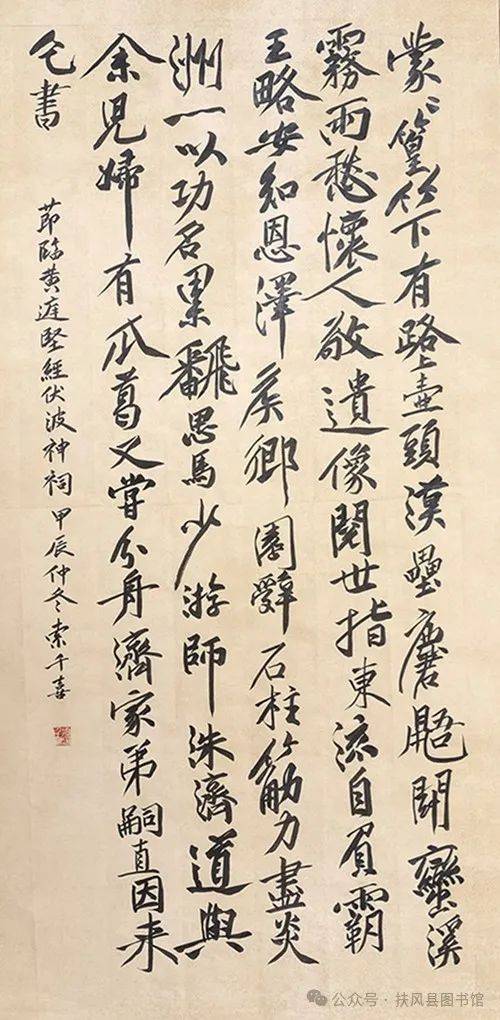 蒙〻篁竹下有路上壺頭漢壘麏鼯鬭蠻溪
霧雨愁懷人敬遺像閱世指東流自負霸
王略安知恩澤矦鄉園辭石柱筋力盡炎
洲一以功名累飜思馬少游師洙濟道與
余兒婦有瓜葛又嘗分舟濟家弟嗣直因來
乞書
節臨黃庭堅經伏波神祠 甲辰仲冬 索千喜
公众号 · 扶风县图书馆